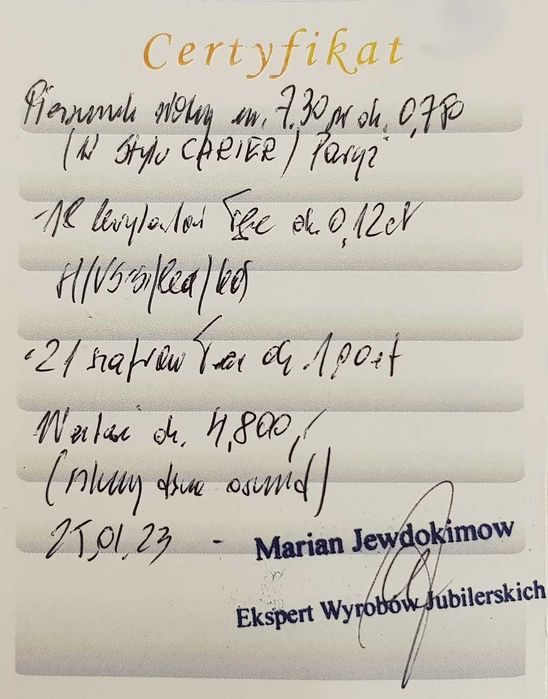 Certyfikat
Pierścionek złoty m. 7,30 gr ok. 0,750
(w stylu CARTIER) Paryż
-18 brylantów ok 0,12ct
H/VS-SI/
-21 szafirów ok. 1,00ct
Wartość ok. 4,800,-
(słownie osiemset)
25,01,23 -
Marian Jewdokimow
Ekspert Wyrobów Jubilerskich